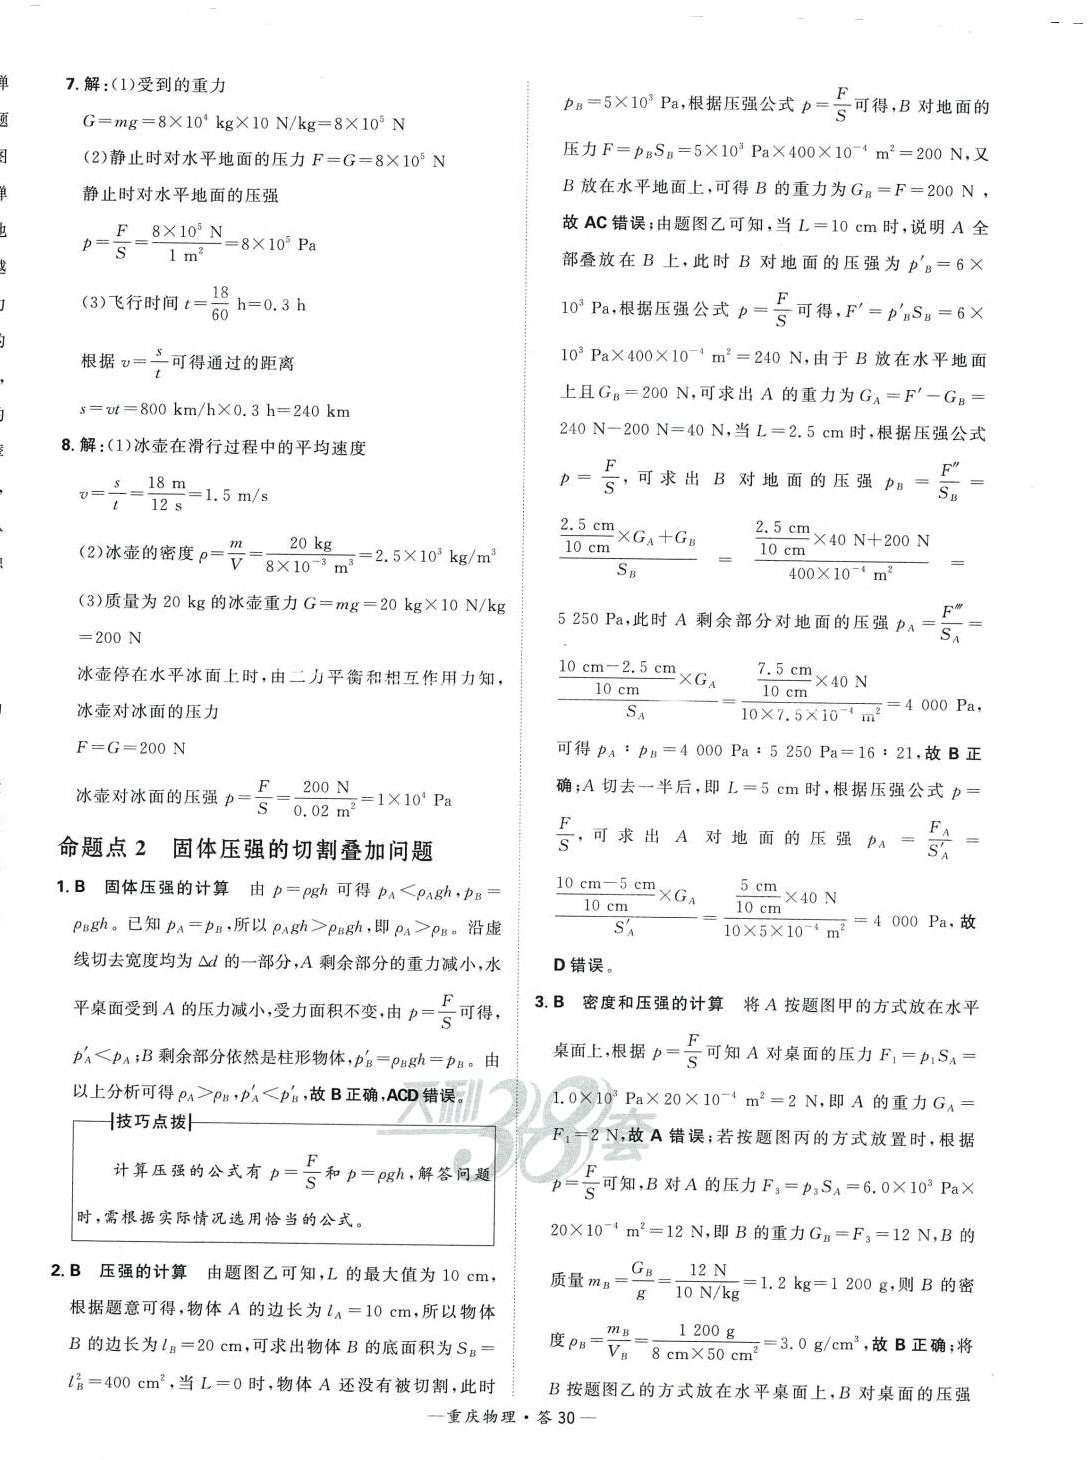 7. 解:(1)受到的重力
G=mg=8×10⁴ kg×10 N/kg=8×10⁵ N
(2)静止时对水平地面的压力 F=G=8×10⁵ N
静止时对水平地面的压强
p=F/S=8×10⁵ N/1 m²=8×10⁵ Pa
(3)飞行时间 t=18/60 h=0.3 h
根据 v=s/t可得通过的距离
s=vt=800 km/h×0.3 h=240 km
8. 解:(1)冰壶在滑行过程中的平均速度
v=s/t=18 m/12 s=1.5 m/s
(2)冰壶的密度 ρ=m/V=20 kg/8×10⁻³ m³=2.5×10³ kg/m³
(3)质量为 20 kg 的冰壶重力 G=mg=20 kg×10 N/kg
=200 N
冰壶停在水平冰面上时,由二力平衡和相互作用力知,
冰壶对冰面的压力
F=G=200 N
冰壶对冰面的压强 p=F/S=200 N/0.02 m²=1×10⁴ Pa
命题点 2 固体压强的切割叠加问题
1. B 固体压强的计算 由 p=ρgh 可得 pA<ρAgh,pB=
ρBgh。已知 pA=pB,所以 ρAgh>ρBgh,即 ρA>ρB。沿虚
线切去宽度均为 Δd 的一部分,A 剩余部分的重力减小,水
平桌面受到 A 的压力减小,受力面积不变,由 p=F/S可得,
p′A<pA;B 剩余部分依然是柱形物体,p′B=ρBgh=pB。由
以上分析可得 ρA>ρB,p′A<p′B,故 B 正确,ACD 错误。
技巧点拨
计算压强的公式有 p=F/S和 p=ρgh,解答问题
时,需根据实际情况选用恰当的公式。
2. B 压强的计算 由题图乙可知,L 的最大值为 10 cm,
根据题意可得,物体 A 的边长为 lA=10 cm,所以物体
B 的边长为 lB=20 cm,可求出物体 B 的底面积为 SB=
l²B=400 cm²,当 L=0 时,物体 A 还没有被切割,此时
pB=5×10³ Pa,根据压强公式 p=F/S可得,B 对地面的
压力 F=pBSB=5×10³ Pa×400×10⁻⁴ m²=200 N,又
B 放在水平地面上,可得 B 的重力为 GB=F=200 N,
故 AC 错误;由题图乙可知,当 L=10 cm 时,说明 A 全
部叠放在 B 上,此时 B 对地面的压强为 p′B=6×
10³ Pa,根据压强公式 p=F/S可得,F′=p′BSB=6×
10³ Pa×400×10⁻⁴ m²=240 N,由于 B 放在水平地面
上且GB=200 N,可求出 A 的重力为 GA=F′−GB=
240 N−200 N=40 N,当 L=2.5 cm 时,根据压强公式
p=F/S,可求出 B 对地面的压强 pB=F″/SB=
(2.5 cm/10 cm×GA+GB)/SB=(2.5 cm/10 cm×40 N+200 N)/400×10⁻⁴ m²=
5 250 Pa,此时 A 剩余部分对地面的压强 pA=F‴/SA=
((10 cm−2.5 cm)/10 cm×GA)/SA=(7.5 cm/10 cm×40 N)/10×7.5×10⁻⁴ m²=4 000 Pa,
可得 pA:pB=4 000 Pa:5 250 Pa=16:21,故 B 正
确;A 切去一半后,即 L=5 cm 时,根据压强公式 p=
F/S,可求出 A 对地面的压强 pA=FA/S′A=
((10 cm−5 cm)/10 cm×GA)/S′A=(5 cm/10 cm×40 N)/10×5×10⁻⁴ m²=4 000 Pa,故
D 错误。
3. B 密度和压强的计算 将 A 按题图甲的方式放在水平
桌面上,根据 p=F/S可知 A 对桌面的压力 F₁=p₁SA=
1.0×10³ Pa×20×10⁻⁴ m²=2 N,即 A 的重力 GA=
F₁=2 N,故 A 错误;若按题图丙的方式放置时,根据
p=F/S可知,B 对 A 的压力 F₃=p₃SA=6.0×10³ Pa×
20×10⁻⁴ m²=12 N,即 B 的重力 GB=F₃=12 N,B 的
质量 mB=GB/g=12 N/10 N/kg=1.2 kg=1 200 g,则 B 的密
度 ρB=mB/VB=1 200 g/8 cm×50 cm²=3.0 g/cm³,故 B 正确;将
B 按题图乙的方式放在水平桌面上,B 对桌面的压强
天利38套
—重庆物理·答 30—